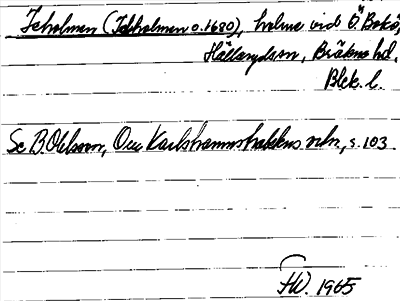 Icholmen (Ickholmen o. 1680), holme vid Ö Bokö,
Hällaryds sn, Bräkne hd,
Blek. l.
Se B. Ohlsson, Om Karlshamnstraktens nähr, s. 103.
HW. 1965